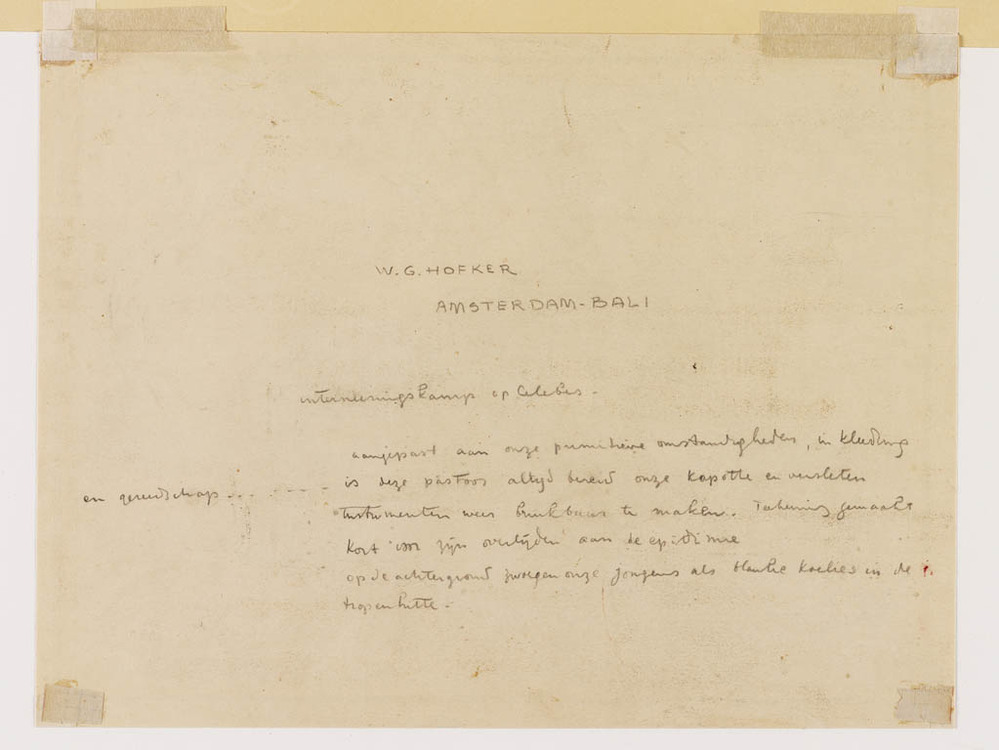 W.G. HOFKER
AMSTERDAM-BALI
interneeringskamp op Celebes.
aangepast aan onze primitieve omstandigheden, in kleeding
en gereedschap... - - - - is deze pastoor altijd bereid onze kapotte en versleten
instrumenten weer bruikbaar te maken. Teekening gemaakt
kort voor zijn overlijden aan de epidimie
op de achtergrond zwoegen onze jongens als blanke koelies in de
tropenhitte.